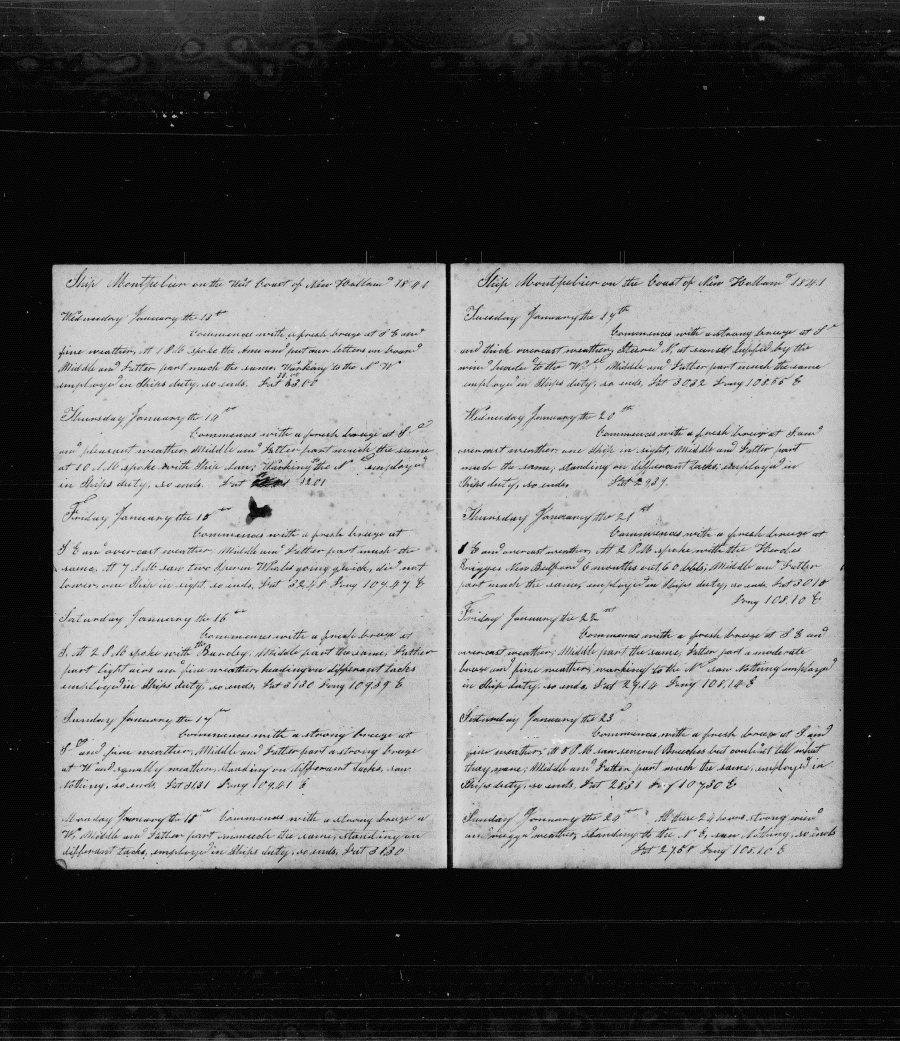 Ship Montpelier on the West Coast of New Holland 1841
Wednesday January the 13th
Commences with a fresh breeze at S E and
fine weather, At 1 P.M. spoke the Ann and put our letters on board
Middle and Latter part much the same, Working to the N W
employed in Ships duty, so ends. Lat 33.00
Thursday January the 14th
Commences with a fresh breeze at S.
and pleasant weather Middle and Latter part much the same
at 10 A.M. spoke with Ship Ann; Working to the Nd employed
in Ships duty, so ends. Lat 3201
Friday January the 15th
Commences with a fresh breeze at
S E and overcast weather Middle and Latter part much the
same. At 7 A.M saw two drown Whales going quick, did not
lower, one Ship in sight, so ends, Lat 3248 Long 109.47 E
Saturday January the 16th
Commences with a fresh breeze at
S. At 2 P.M spoke with the Barcley. Middle part the same, Latter
part light airs and fine weather, heading on differant tacks
employed in Ships duty, so ends, Lat 3130 Long 109.39 E
Sunday January the 17th
Commences with a strong breeze at
Sd and fine weather, Middle and Latter part a strong breeze
at W and squally weather, standing on differant tacks, saw
nothing, so ends Lat 3131 Long 109.41 E
Monday January the 18th Commences with a strong breeze at
W, Middle and Latter part mutch the same, standing on
differant tacks, employed in Ships duty, so ends, Lat 3130
Ship Montpelier on the Coast of New Holland 1841
Tuesday January the 19th
Commences with a strong breeze at S
and thick overcast weather, Steered N, at sunsett luffed by the
wind headed to the Wd Middle and Latter part much the same
employed in Ships duty, so ends, Lat 3032 Long 108.55 E
Wednesday January the 20th
Commences with a fresh breeze at S. and
overcast weather one Ship in sight, Middle and Latter part
much the same, standing on differant tacks, employed in
Ships duty, so ends. Lat 2937.
Thursday January the 21st
Commences with a fresh breeze at
S E and overcast weather, At 2 P.M. spoke with the
Briggs New Bedford 6 months out 60 bbls; Middle and Latter
part much the same, employed in Ships duty, so ends Lat 3010
Long 108.10 E
Friday January the 22st
Commences with a fresh breeze at S E and
overcast weather, Middle part the same, Latter part a moderate
breeze and fine weather, working to the Nd saw nothing employed
in Ship duty, so ends. Lat 29.14 Long 108.14 E
Saturday January the 23d
Commences with a fresh breeze at S. and
fine weather, At 5 P.M. saw several Breeches but could not tell what
they were; Middle and Latter part much the same, employed in
Ships duty, so ends. Lat 28.31 Long 107.50 E
Sunday January the 24th All these 24 hours strong wind
and rugged weather, standing to the N E, saw nothing, so ends
Lat 2758 Long 108.10 E